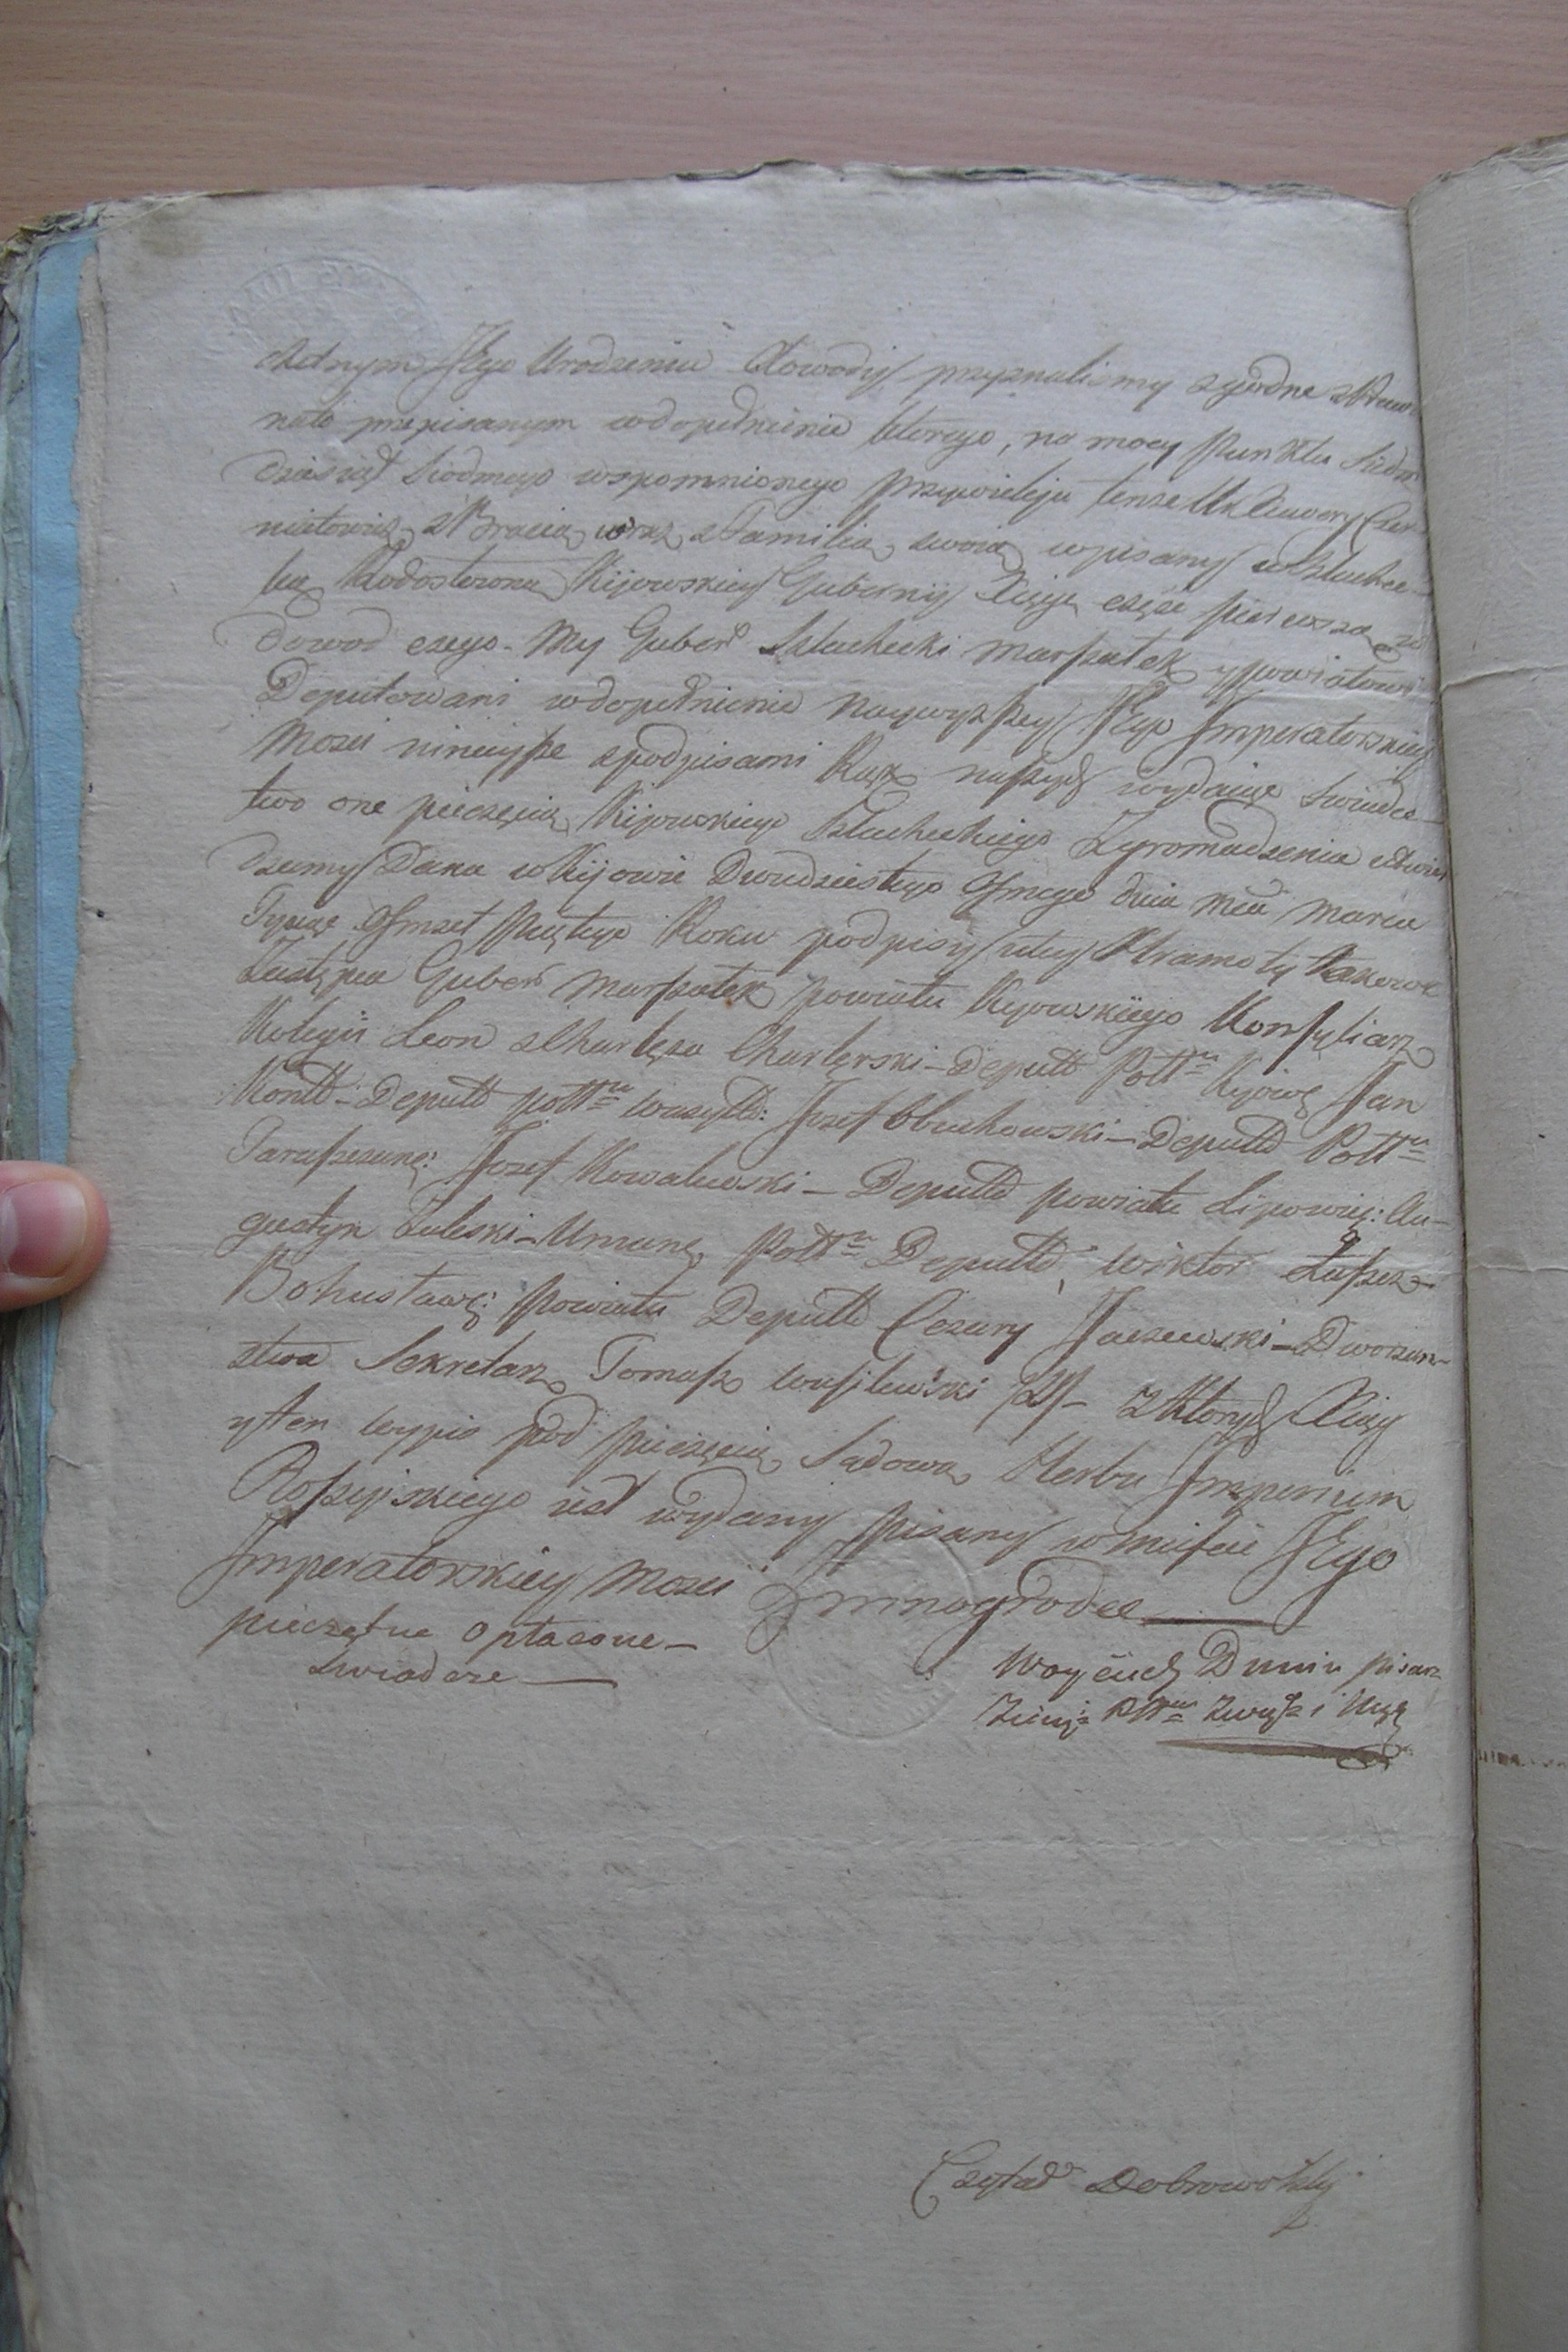 chetnym Jego Urodzeniu dowody przyznalismy zgodne z
nato przepisanym wdopełnienie ktorego, na mocy Punktu Siedm
dziesiąt Siodmego wspomnionego przywileju tenze
z Bracią wraz z Familią swoią wpisany w
ką Rodosłowną Kijowskiey Gubernij Xięgę część pierwszą, w
dowod czego. My Guber: Szlachecki Marszałek y powiatowi
Deputowani wdopełnienie naywyzszey Jego Imperatorskiey
Mości ninieysze z podpisami Rąk naszych wydaiąc Swiadec
two one pieczęcią Kijowskiego Szlacheckiego Zgromadzenia
dzamy Dana w Kijowie Dwudziestego Osmego dnia Mca Marca
Tysiąc Osmset Piątego Roku podpisy utey Hramoty takowe
Zastępca Guber: Marszałek powiatu Kijowskiego Konsyliarz
Kolegij Leon z Charlęza Charlęzski – Deputt Potttu Kijowę Jan
Kontt – Deputt potttu wasylk: Jozef Obuchowski – Deputtd Potttu
Taraszczanę: Jozef Kowalewski – Deputtd powiatu Lipowię: Au–
gustyn Zaleski – Umanę Potttu Deputtd, Wiktor Łapsz–
Bohusławę: Powiatu Deputtd Cezary Jaczewski – Dworzan–
stwa Sekretarz Tomasz Wasilewski /LS/ – Z Ktorych Xiąg
y ten wypis pod pieczęcią Sądową Herbu Imperium
Rossyiskiego iest wydany pisany w mieście Jego
Imperatorskiey Mości Zwinogrodce
pieczętne opłacone –
Swiadcze
Woyciech Dunin Pisarz
Ziemj: Ptttu Zwię
Czytał Dobrowolsky